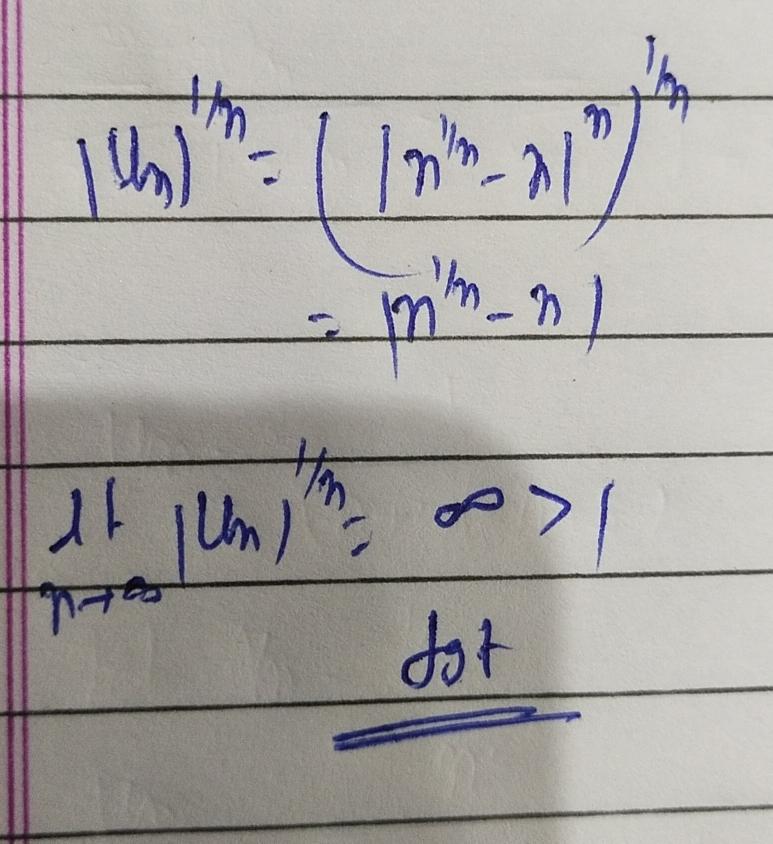 |Un|^{1/n} = (|n^{1/n} - n|^n)^{1/n}
= |n^{1/n} - n|
lt_{n→∞} |Un|^{1/n} = ∞ > 1
dgt